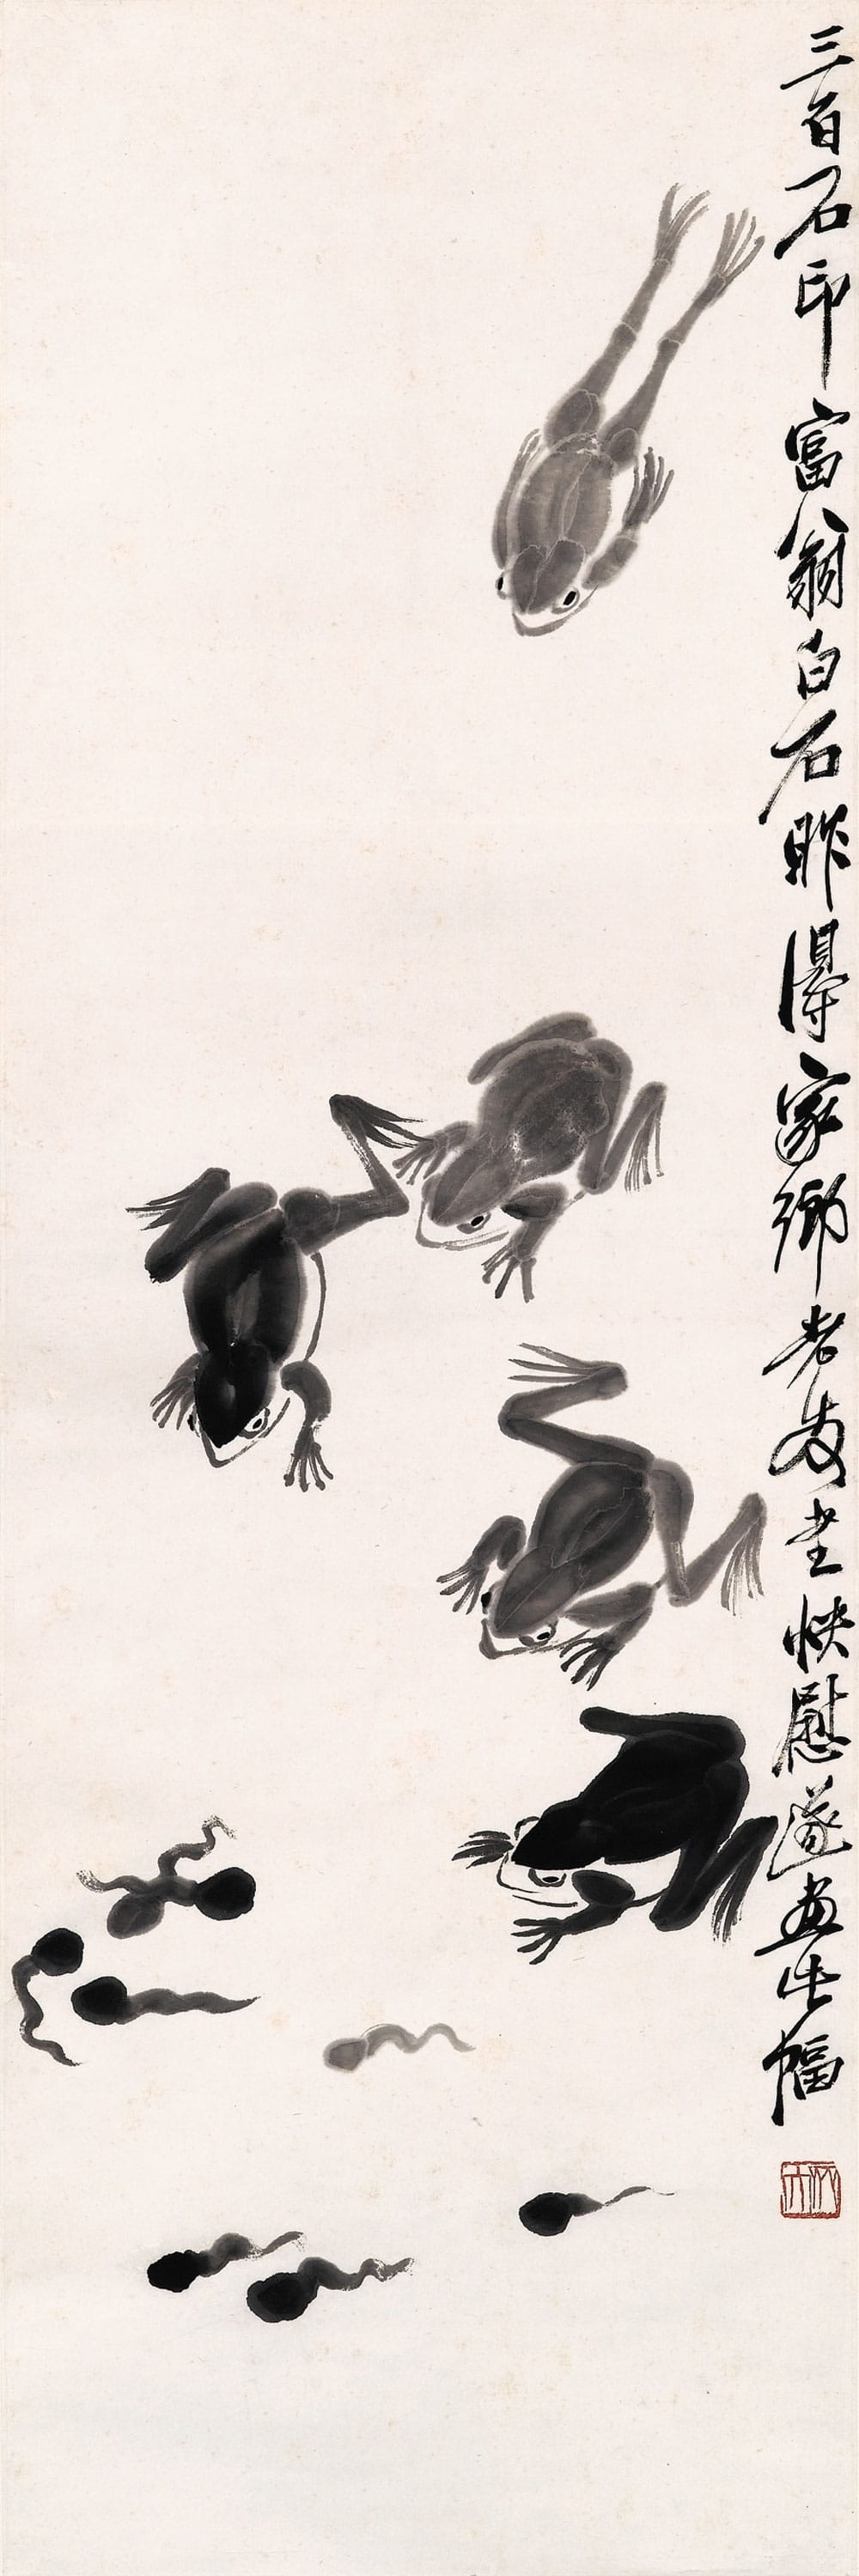 三百石印富翁白石昨得家鄉老友書快慰遂畫此幅